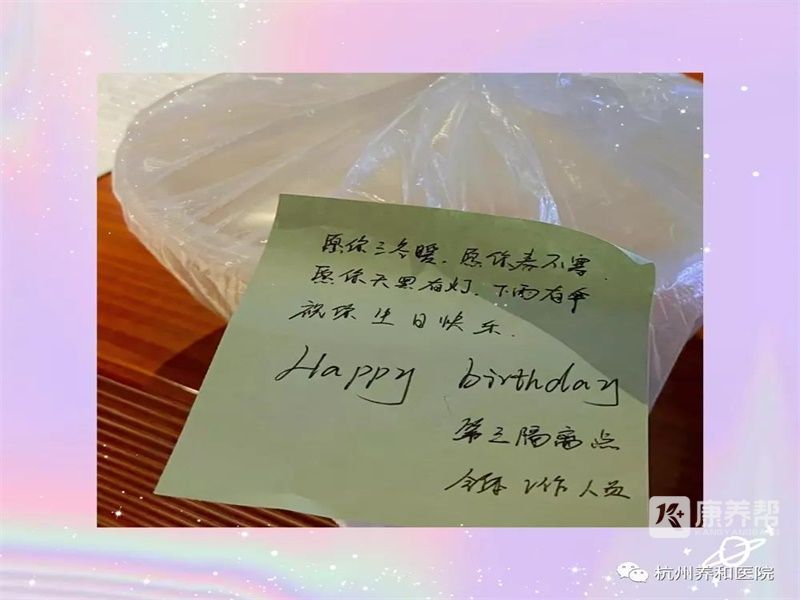 愿你三冬暖,愿你春不寒
愿你天黑有灯,下雨有伞
祝你生日快乐.
Happy birthday
第三隔离点
全体工作人员
K+ 康养帮
KANGYANGBANG
杭州养和医院